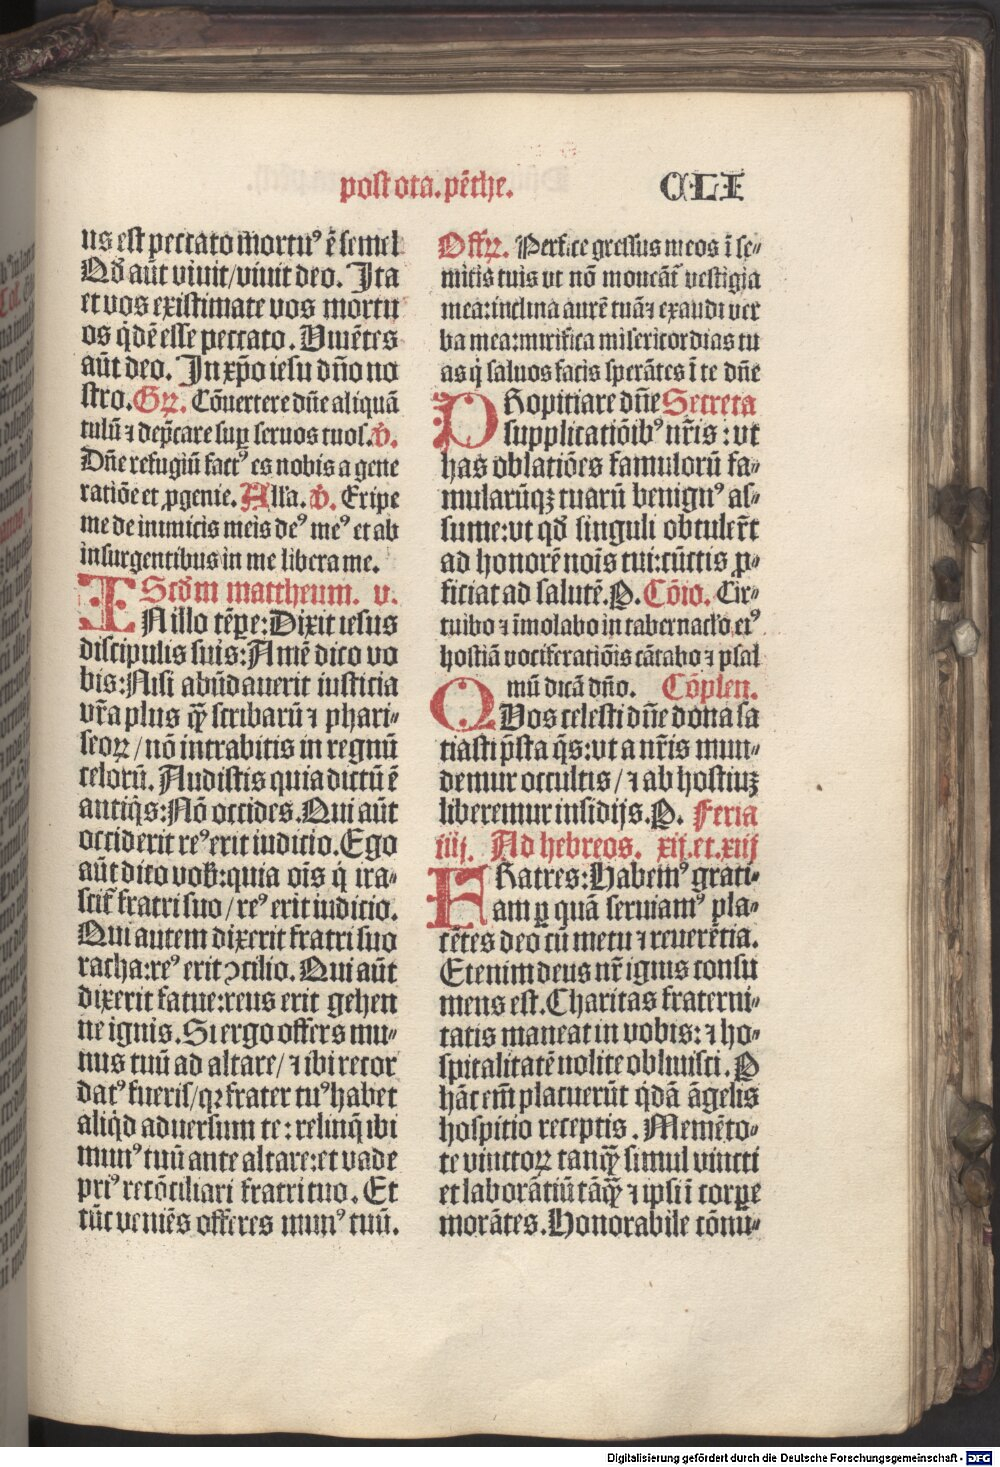 post octa. pēthe.
CLI
us est peccato mortuꝰ ē semel
Qd̄ aūt viuit/viuit deo. Ita
et vos existimate vos mortu
os q̇dē esse peccato. Viuētes
aūt deo. In xp̄o iesu dño no
stro. Gꝝ. Cōuertere dñe aliquā
tulū ⁊ dep̄care suꝑ seruos tuos. v̄.
Dñe refugiū factꝰ es nobis a gene
ratiōe et ꝓgenie. Alla. v̄. Eripe
me de inimicis meis deꝰ meꝰ et ab
insurgentibus in me libera me.
Scd̄m mattheum. v.
IN illo tēꝑe: Dixit iesus
discipulis suis: Amē dico vo
bis: Nisi abūdauerit iusticia
vr̄a plus q̄ꝫ scribarū ⁊ phari⸗
seoꝝ/ nō intrabitis in regnū
celorū. Audistis quia dictū ē
antiq̇s: Nō occides. Qui aūt
occiderit reꝰ erit iudicio. Ego
aūt dico vob̄: quia oīs q̇ ira⸗
scit̄ fratri suo/ reꝰ erit iudicio.
Qui autem dixerit fratri suo
racha: reꝰ erit ↄcilio. Qui aūt
dixerit fatue: reus erit gehen
ne ignis. Si ergo offers mu⸗
nus tuū ad altare/ ⁊ ibi recor
datꝰ fueris/ qꝛ frater tuꝰ habet
aliq̇d aduersum te: relinq̄ ibi
munꝰ tuū ante altare: et vade
priꝰ recōciliari fratri tuo. Et
tūc veniēs offeres munꝰ tuū.
Offꝝ. Perfice gressus meos ī se⸗
mitis tuis vt nō moueāt̄ vestigia
mea: inclina aurē tuā ⁊ exaudi ver
ba mea: mirifica misericordias tu
as q̇ saluos facis sperātes ī te dñe
PRopitiare dñe Secreta
supplicatiōibꝰ nr̄is: vt
has oblatiōes famulorū fa⸗
mularūqꝫ tuarū benignꝰ as⸗
sume: vt qd̄ singuli obtulerūt
ad honorē noīs tui: cūctis ꝓ⸗
ficiat ad salutē. P. Cōio. Cir⸗
cuibo ⁊ īmolabo in tabernaclo eiꝰ
hostiā vociferatiōis cātabo ⁊ psal
mū dicā dño. Cōplen.
QUos celesti dñe dona sa
tiasti p̄sta q̄s: vt a nr̄is mun⸗
demur occultis/ ⁊ ab hostiuꝫ
liberemur insidijs. P. Feria
iiij. Ad hebreos. xij. et. xiij
FRatres: Habemꝰ grati⸗
am ꝑ quā seruiamꝰ pla⸗
cētes deo cū metu ⁊ reuerētia.
Etenim deus nr̄ ignis consu
mens est. Charitas fraterni⸗
tatis maneat in vobis: ⁊ ho⸗
spitalitatē nolite obliuisci. P
hāc em̄ placuerūt q̇dā āgelis
hospitio receptis. Memēto⸗
te vinctoꝝ tanq̄ꝫ simul vincti
et laborātiū tāq̄ꝫ ⁊ ipsi ī corꝑe
morātes. Honorabile cōnu⸗
Digitalisierung gefördert durch die Deutsche Forschungsgemeinschaft - DFG